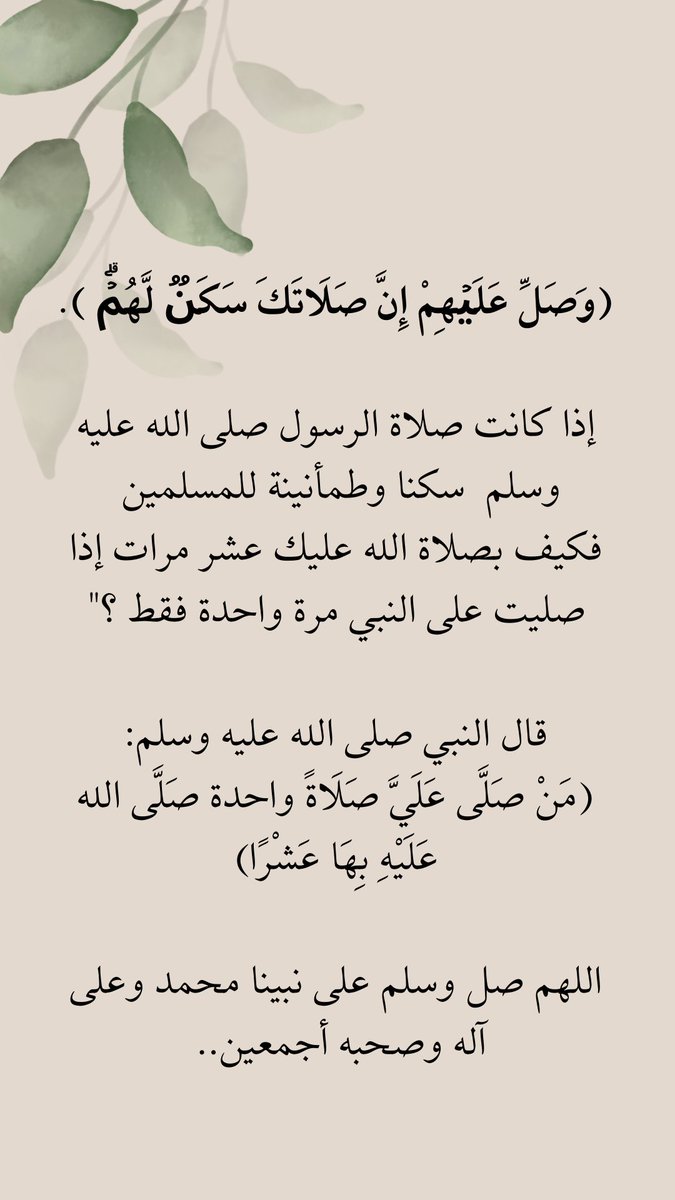 (وَصَلِّ عَلَيْهِمْ إِنَّ صَلَاتَكَ سَكَنٌ لَّهُمْ ۗ ).
إذا كانت صلاة الرسول صلى الله عليه
وسلم سكنا وطمأنينة للمسلمين
فكيف بصلاة الله عليك عشر مرات إذا
صليت على النبي مرة واحدة فقط ؟"
قال النبي صلى الله عليه وسلم:
(مَنْ صَلَّى عَلَيَّ صَلَاةً واحدة صَلَّى الله
عَلَيْهِ بِهَا عَشْرًا)
اللهم صل وسلم على نبينا محمد وعلى
آله وصحبه أجمعين..